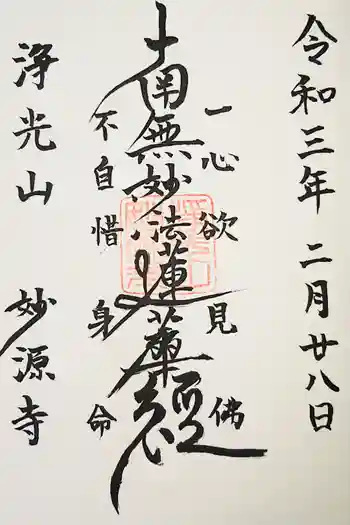 令和三年 二月廿八日
一心欲見佛
南無妙法蓮華經
不自惜身命
浄光山 妙源寺